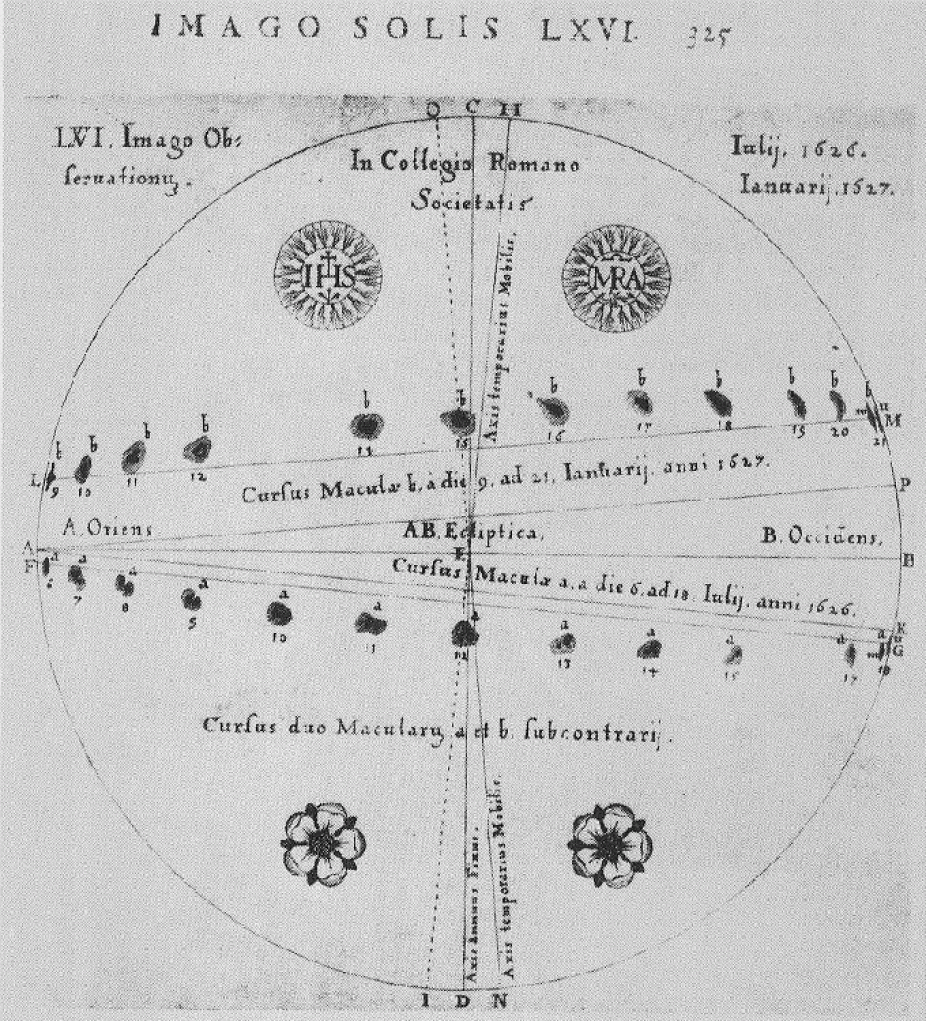 IMAGO SOLIS LXVI. 325
O C H
LVI. Imago Ob-
seruationū.
In Collegio Romano
Societatis
Iulij. 1626.
Ianuarij. 1627.
IHS
MRA
Axis temporarius Mobilis.
b b b b b b b b b b b b
L 9 10 11 12 15 16 17 18 19 20 21 m u M
Cursus Maculæ b, à die 9. ad 21. Ianuarij. anni 1627.
P
A. Oriens
AB. Ecliptica.
B. Occidens.
A E B
F
Cursus Maculæ a, a die 6. ad 18. Iulij. anni 1626.
K
a a a a a a a a a a a a
6 7 8 9 10 11 12 13 14 15 17 18 m u G
Cursus duo Macularū a et b subcontrarij.
Axis Annuus Fixus.
Axis temporarius Mobilis.
I D N